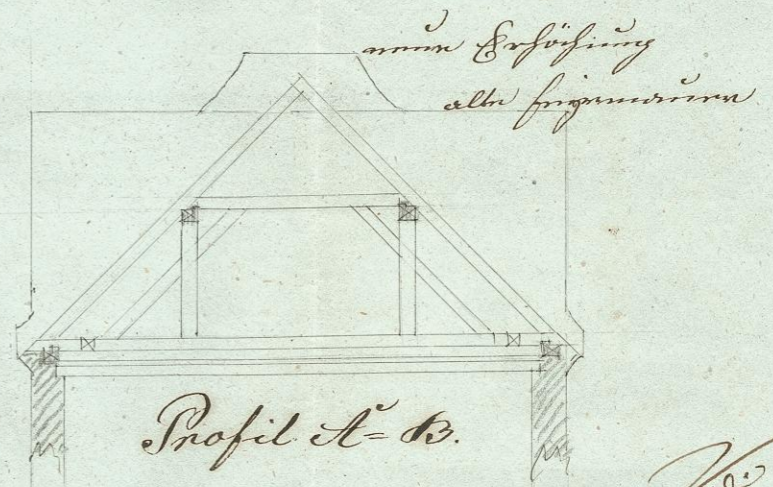 neue Erhöhung
alte Feuermauer
Profil A = B.